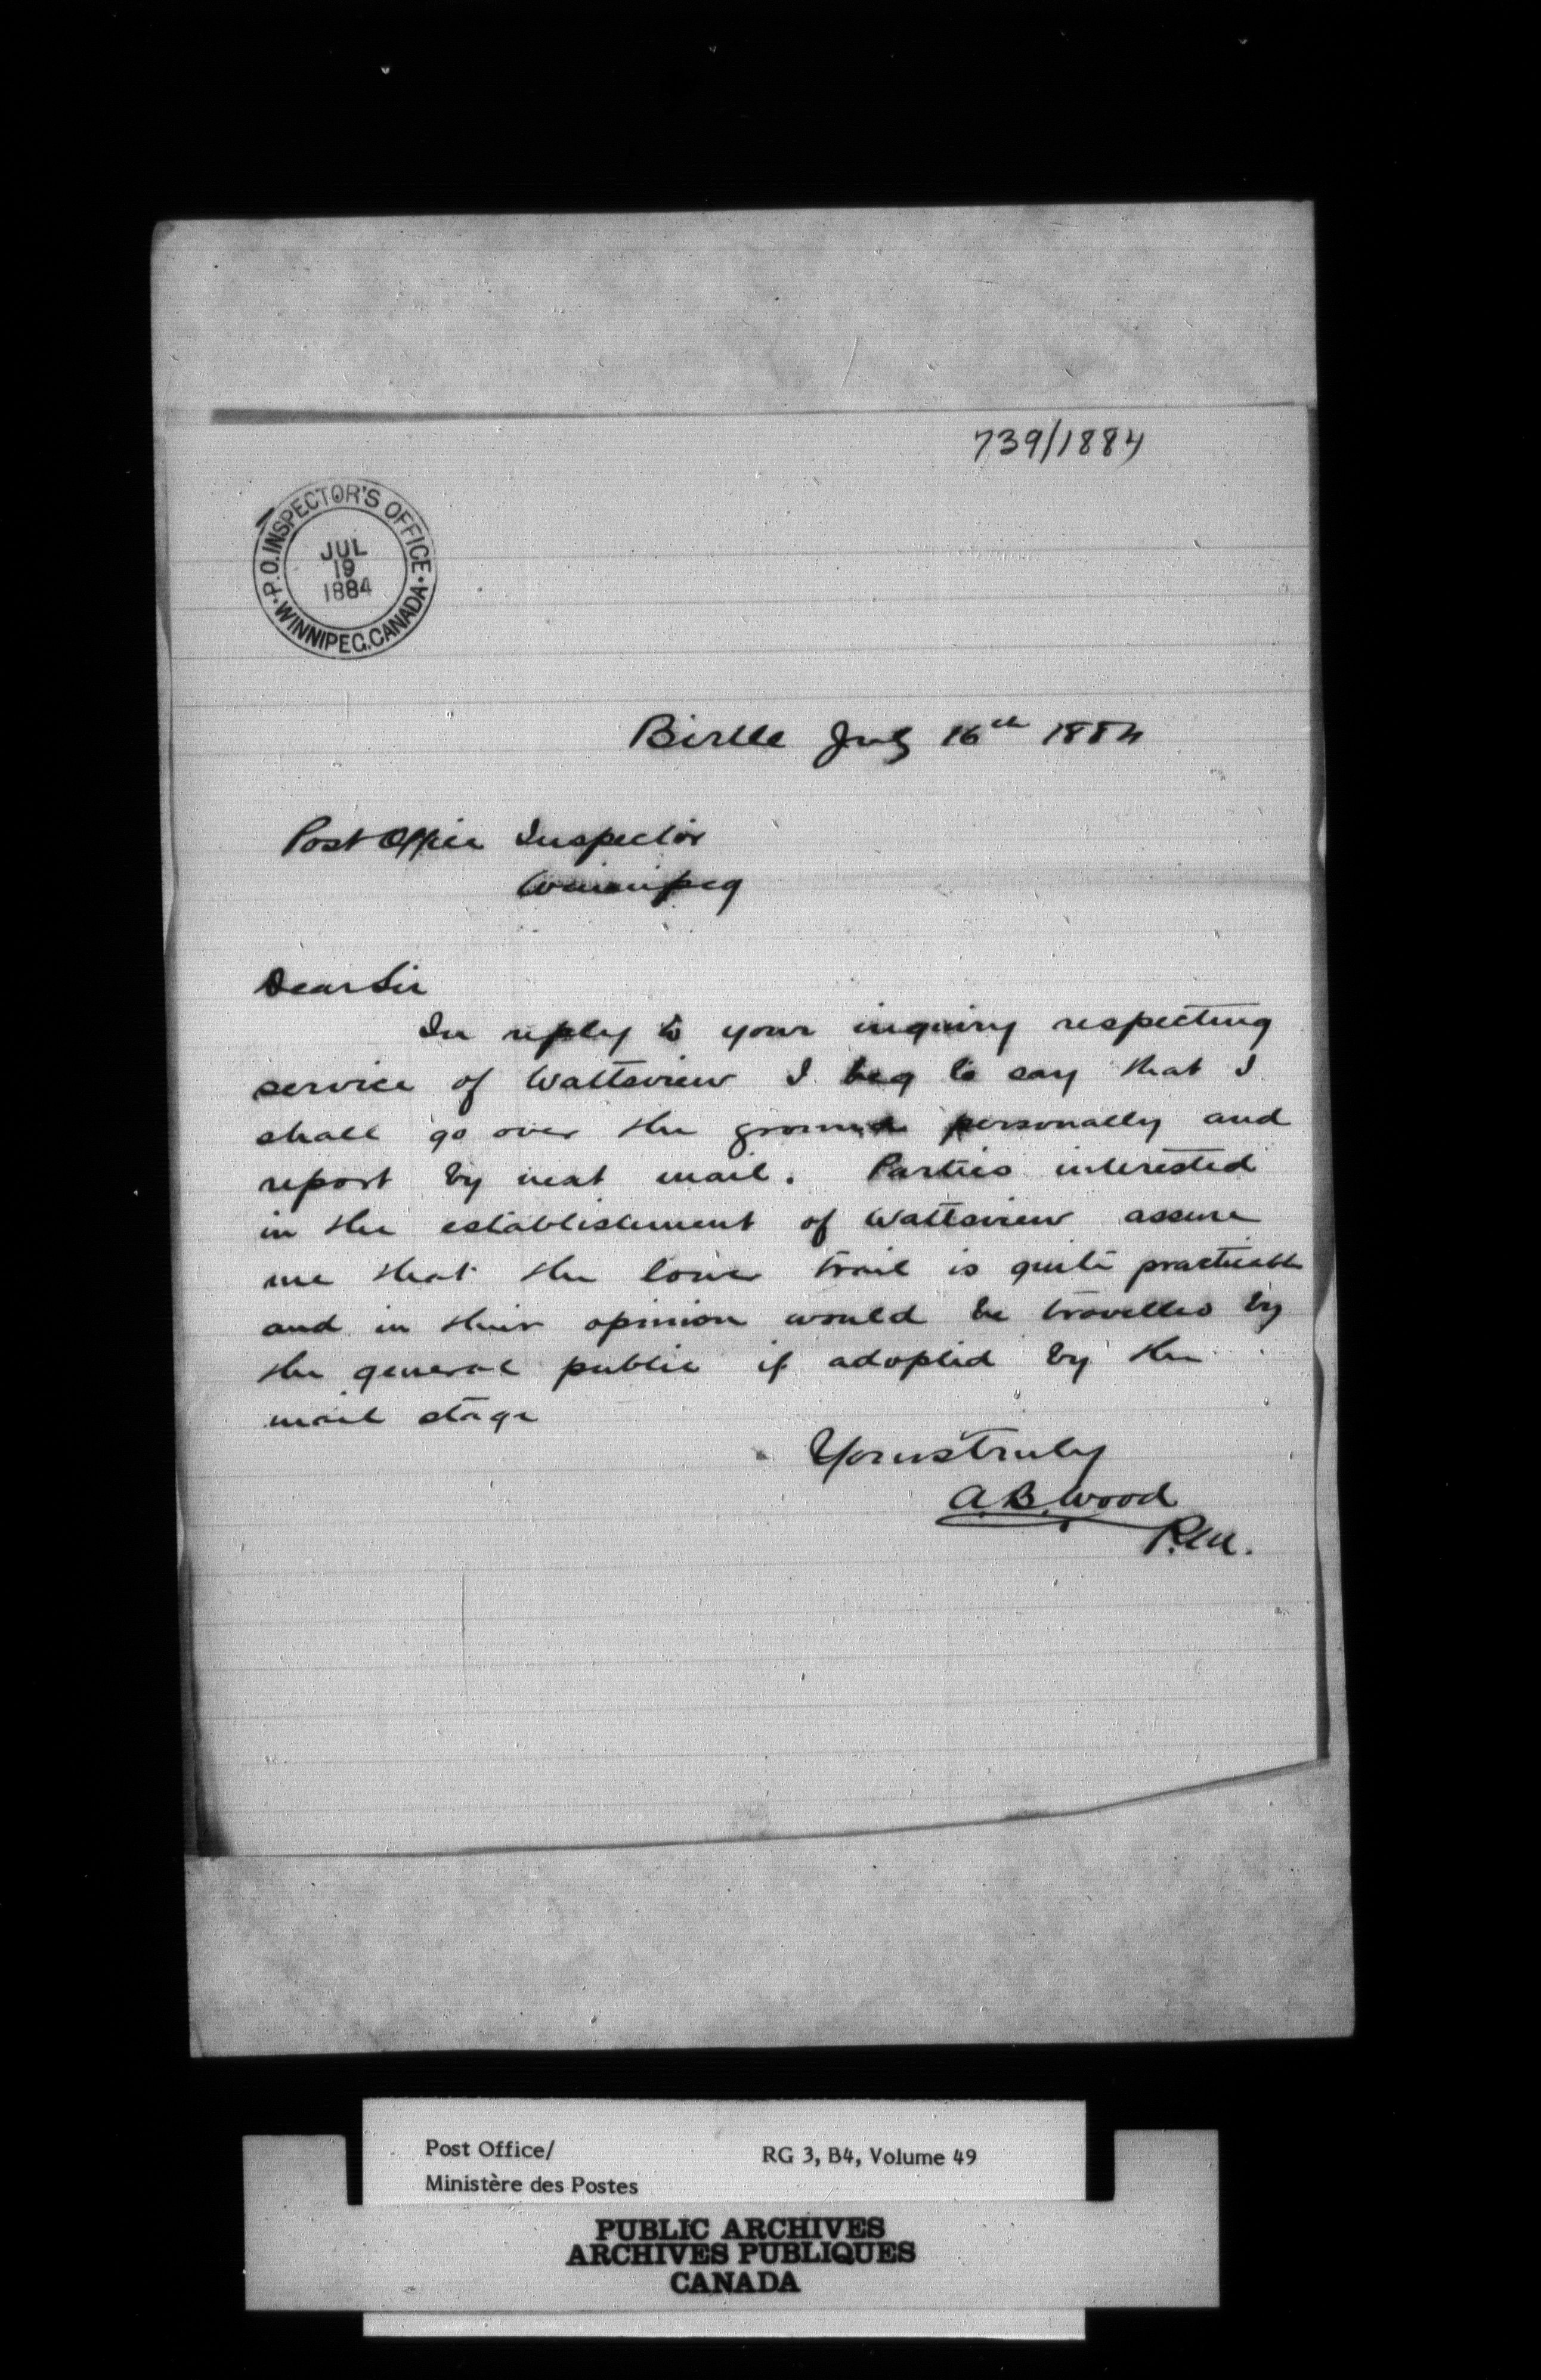 739/1884
P.O. INSPECTOR'S OFFICE
JUL
19
1884
WINNIPEG. CANADA
Birtle July 16th 1884
Post Office Inspector
Winnipeg
Dear Sir
In reply to your inquiry respecting
service of Wattsview I beg to say that I
shall go over the ground personally and
report by next mail. Parties interested
in the establishment of Wattsview assure
me that the lower trail is quite practicable
and in their opinion would be travelled by
the general public if adopted by the
mail stage
Yours truly
A.B. Wood
P.M.
Post Office/
Ministère des Postes
RG 3, B4, Volume 49
PUBLIC ARCHIVES
ARCHIVES PUBLIQUES
CANADA